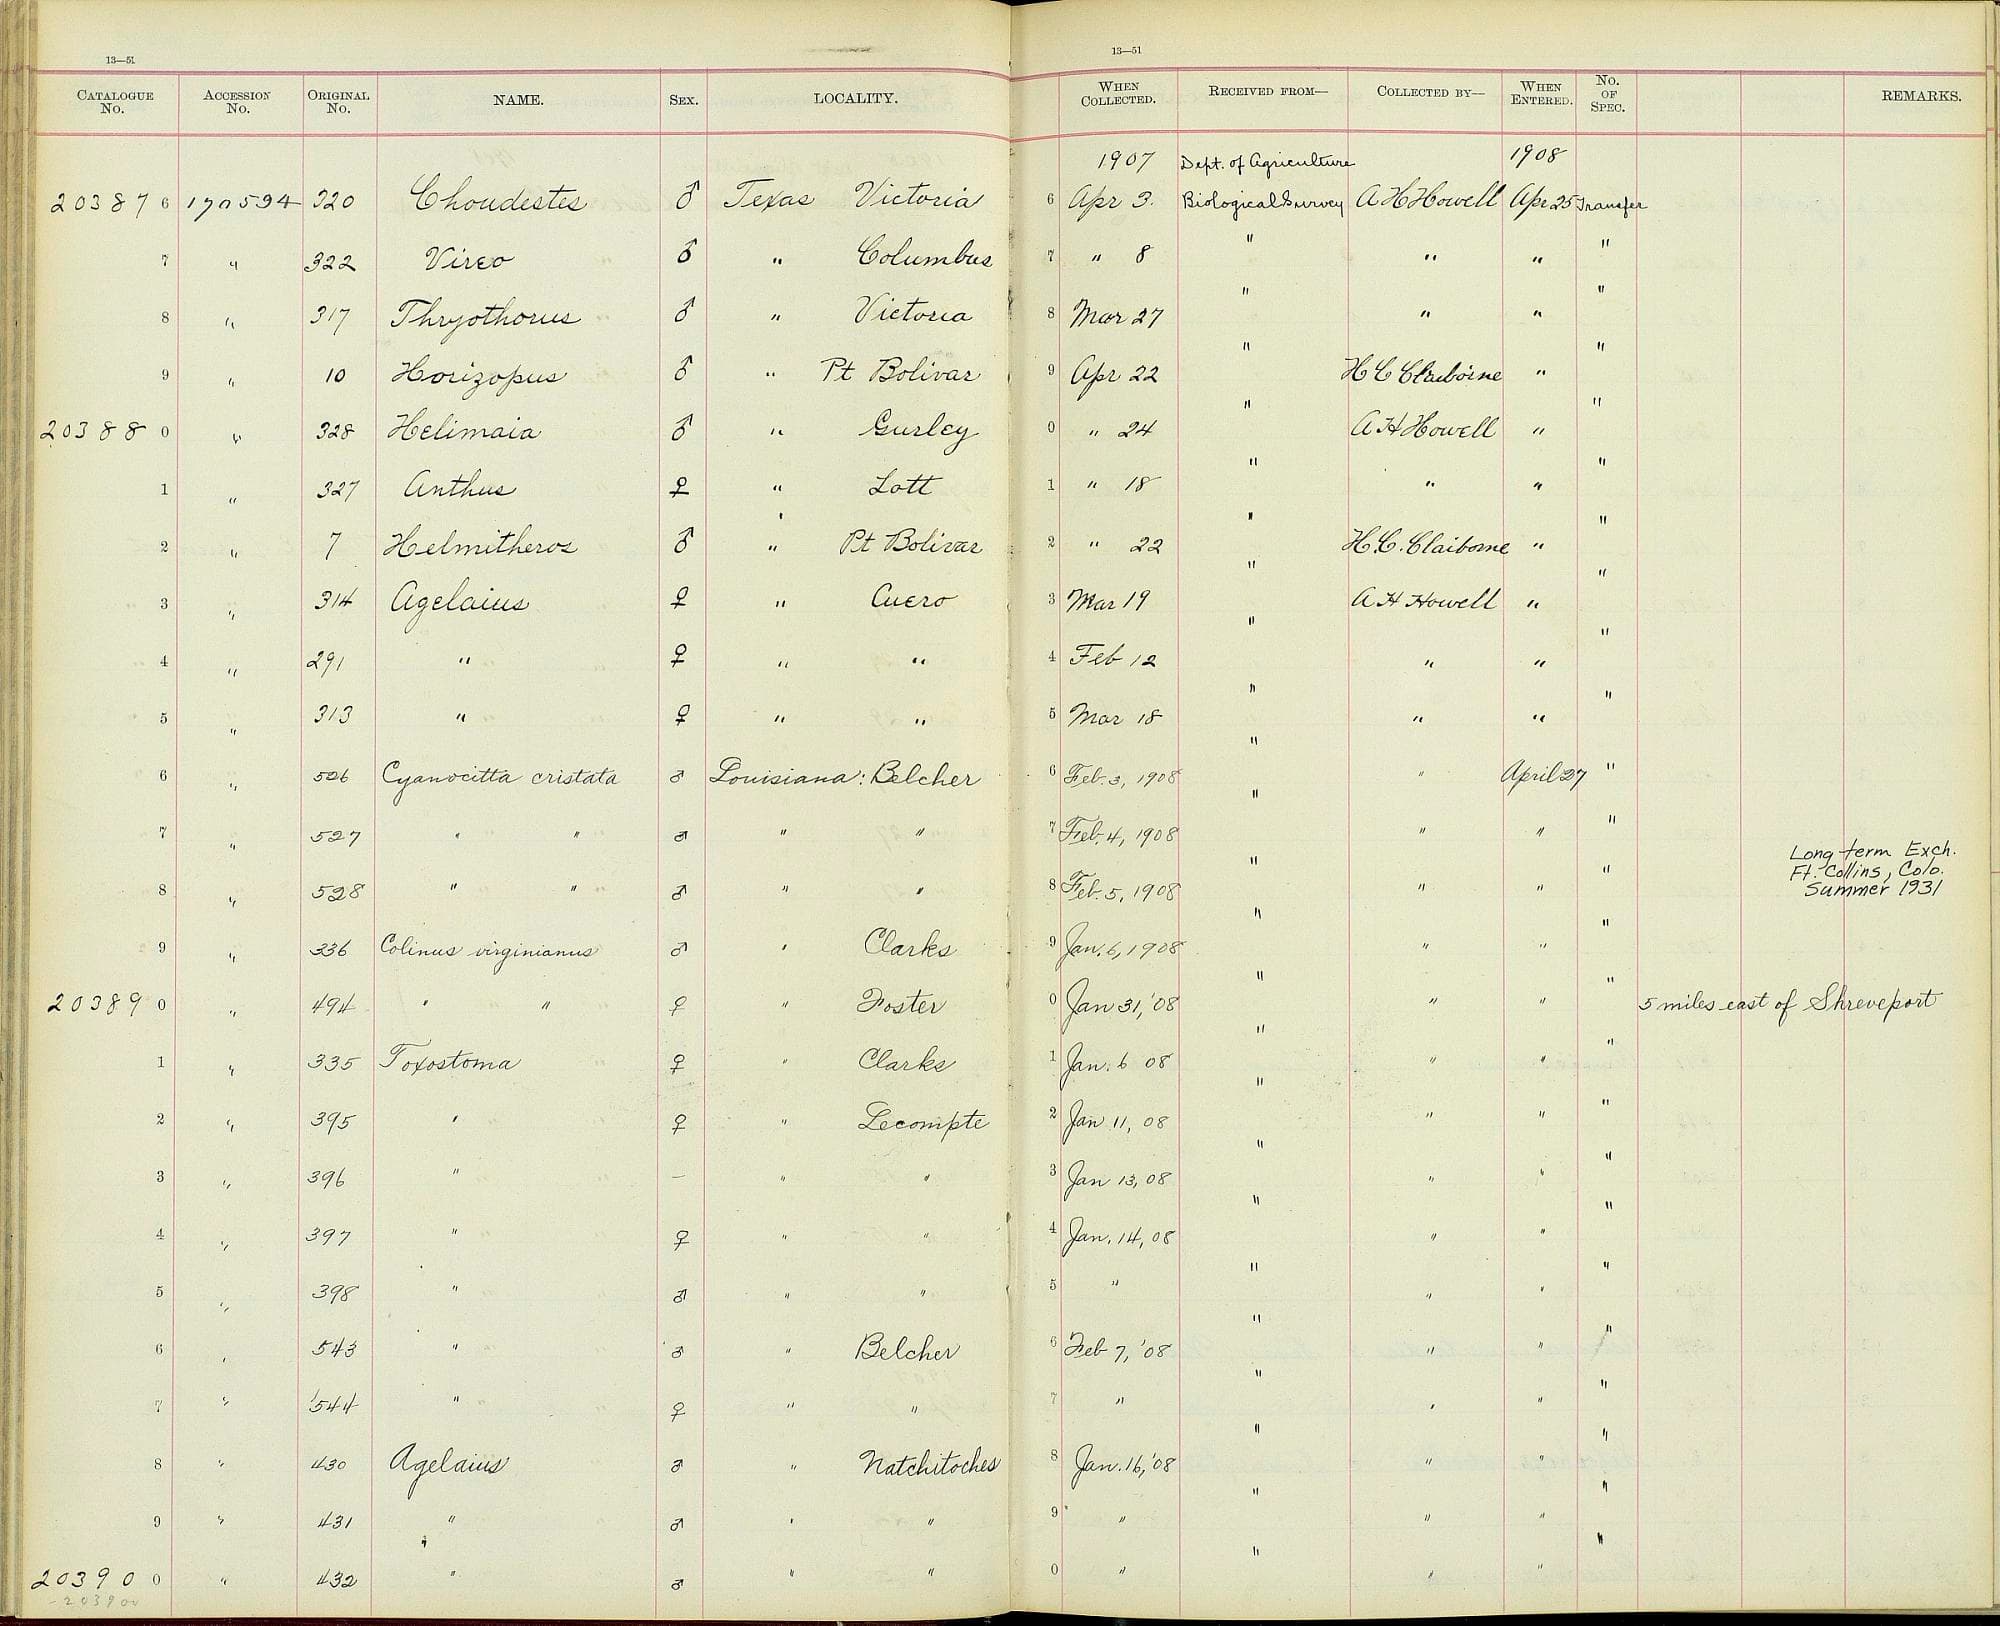 13—51
13—51
CATALOGUE NO. ACCESSION NO. ORIGINAL NO. NAME. SEX. LOCALITY. WHEN COLLECTED. RECEIVED FROM— COLLECTED BY— WHEN ENTERED. NO. OF SPEC. REMARKS.
1907 Dept. of Agriculture 1908
20387 6 170594 320 Chondestes ♂ Texas Victoria 6 Apr 3. Biological Survey A H Howell Apr 25 Transfer
7 " 322 Vireo ♂ " Columbus 7 " 8 " " " "
8 " 317 Thryothorus ♂ " Victoria 8 Mar 27 " " " "
9 " 10 Horizopus ♂ " Pt Bolivar 9 Apr 22 " H C Claiborne " "
20388 0 " 328 Helimaia ♂ " Gurley 0 " 24 " A H Howell " "
1 " 327 Anthus ♀ " Lott 1 " 18 " " " "
2 " 7 Helmitheros ♂ " Pt Bolivar 2 " 22 " H. C. Claiborne " "
3 " 314 Agelaius ♀ " Cuero 3 Mar 19 " A H Howell " "
4 " 291 " ♀ " " 4 Feb 12 " " " "
5 " 313 " ♀ " " 5 Mar 18 " " " "
6 " 506 Cyanocitta cristata ♂ Louisiana: Belcher 6 Feb. 3, 1908 " " April 27 "
7 " 527 " " ♂ " " 7 Feb. 4, 1908 " " " "
Long term Exch.
Ft. Collins, Colo.
8 " 528 " " ♂ " " 8 Feb. 5, 1908 " " " " Summer 1931
9 " 336 Colinus virginianus ♂ " Clarks 9 Jan. 6, 1908 " " " "
20389 0 " 494 " " ♀ " Foster 0 Jan 31, '08 " " " " 5 miles east of Shreveport
1 " 335 Toxostoma ♀ " Clarks 1 Jan. 6 08 " " " "
2 " 395 " ♀ " Lecompte 2 Jan 11, 08 " " " "
3 " 396 " — " " 3 Jan 13, 08 " " " "
4 " 397 " ♀ " " 4 Jan. 14, 08 " " " "
5 " 398 " ♂ " " 5 " " " " "
6 " 543 " ♂ " Belcher 6 Feb 7, '08 " " " "
7 " 544 " ♀ " " 7 " " " " "
8 " 430 Agelaius ♂ " Natchitoches 8 Jan. 16, '08 " " " "
9 " 431 " ♂ " " 9 " " " " "
20390 0 " 432 " ♂ " " 0 " " " " "